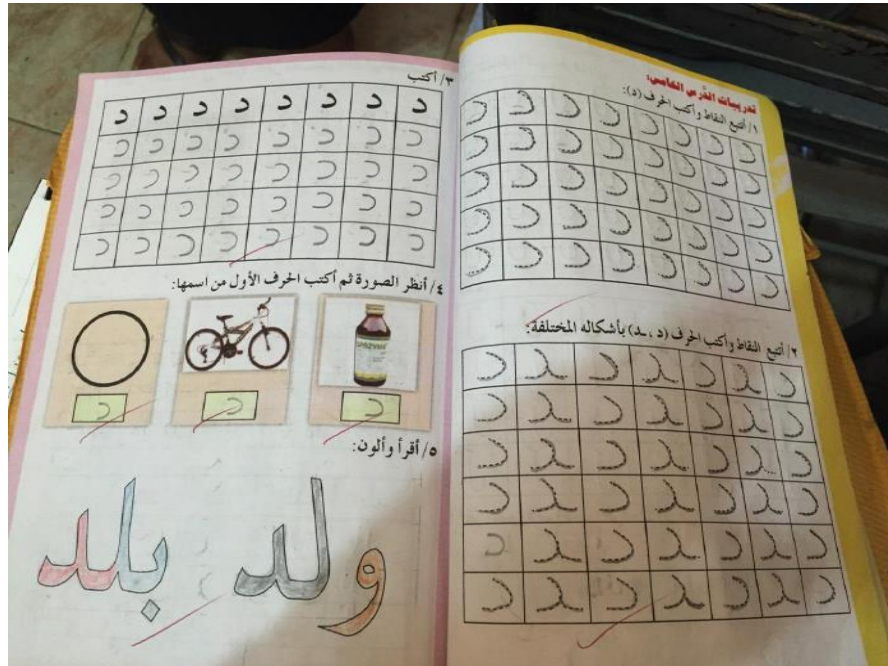 تدريبات الدَّرس الخامس:
١/ أتتبع النقاط وأكتب الحرف (د):
د د د د د د د د
د د د د د د د د
د د د د د د د د
د د د د د د د د
د د د د د د د د
٢/ أتتبع النقاط وأكتب الحرف (د ، ـد) بأشكاله المختلفة:
د ـد د ـد د ـد د
د ـد د ـد د ـد د
د ـد د ـد د ـد د
د ـد د ـد د ـد د
د ـد د ـد د ـد د
د ـد د ـد د ـد د
٣/ أكتب
د د د د د د د د
د د د د د د د د
د د د د د د د د
د د د د د د د د
د د د د د د د د
٤/ أنظر الصورة ثم أكتب الحرف الأول من اسمها:
د د د
٥/ أقرأ وألون:
ولد بلد